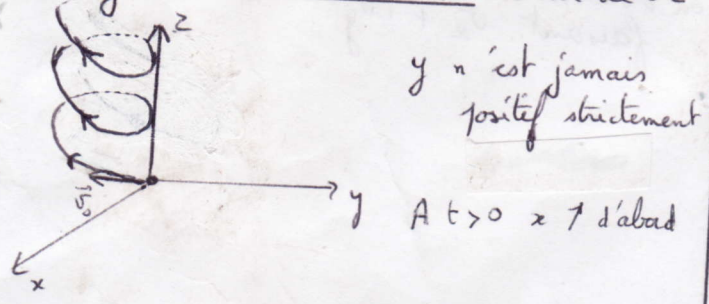 z
y n'est jamais
positif strictement
y
A t>0 x ↑ d'abord
x